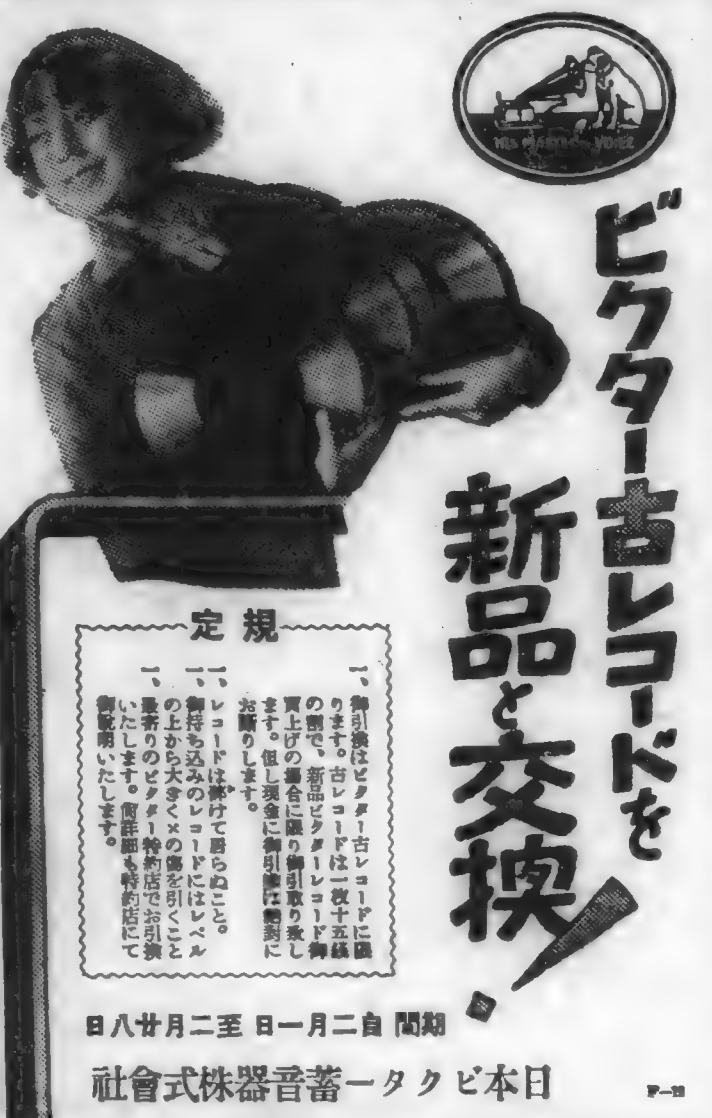 HIS MASTER'S VOICE
ビクター古レコードを
新品と交換!
規定
一、御引換はビクター古レコードに限
ります。古レコードは一枚十五銭
の割で、新品ビクターレコード御
買上げの場合に限り御引取り致し
ます。但し現金に御引換は絶対に
お断りします。
一、レコードは割けて居らぬこと。
一、御持ち込みのレコードにはレベル
の上から大きく×の傷を引くこと
一、最寄りのビクター特約店でお引換
いたします。尚詳細も特約店にて
御説明いたします。
期間 自二月一日 至二月廿八日
日本ビクター蓄音器株式會社